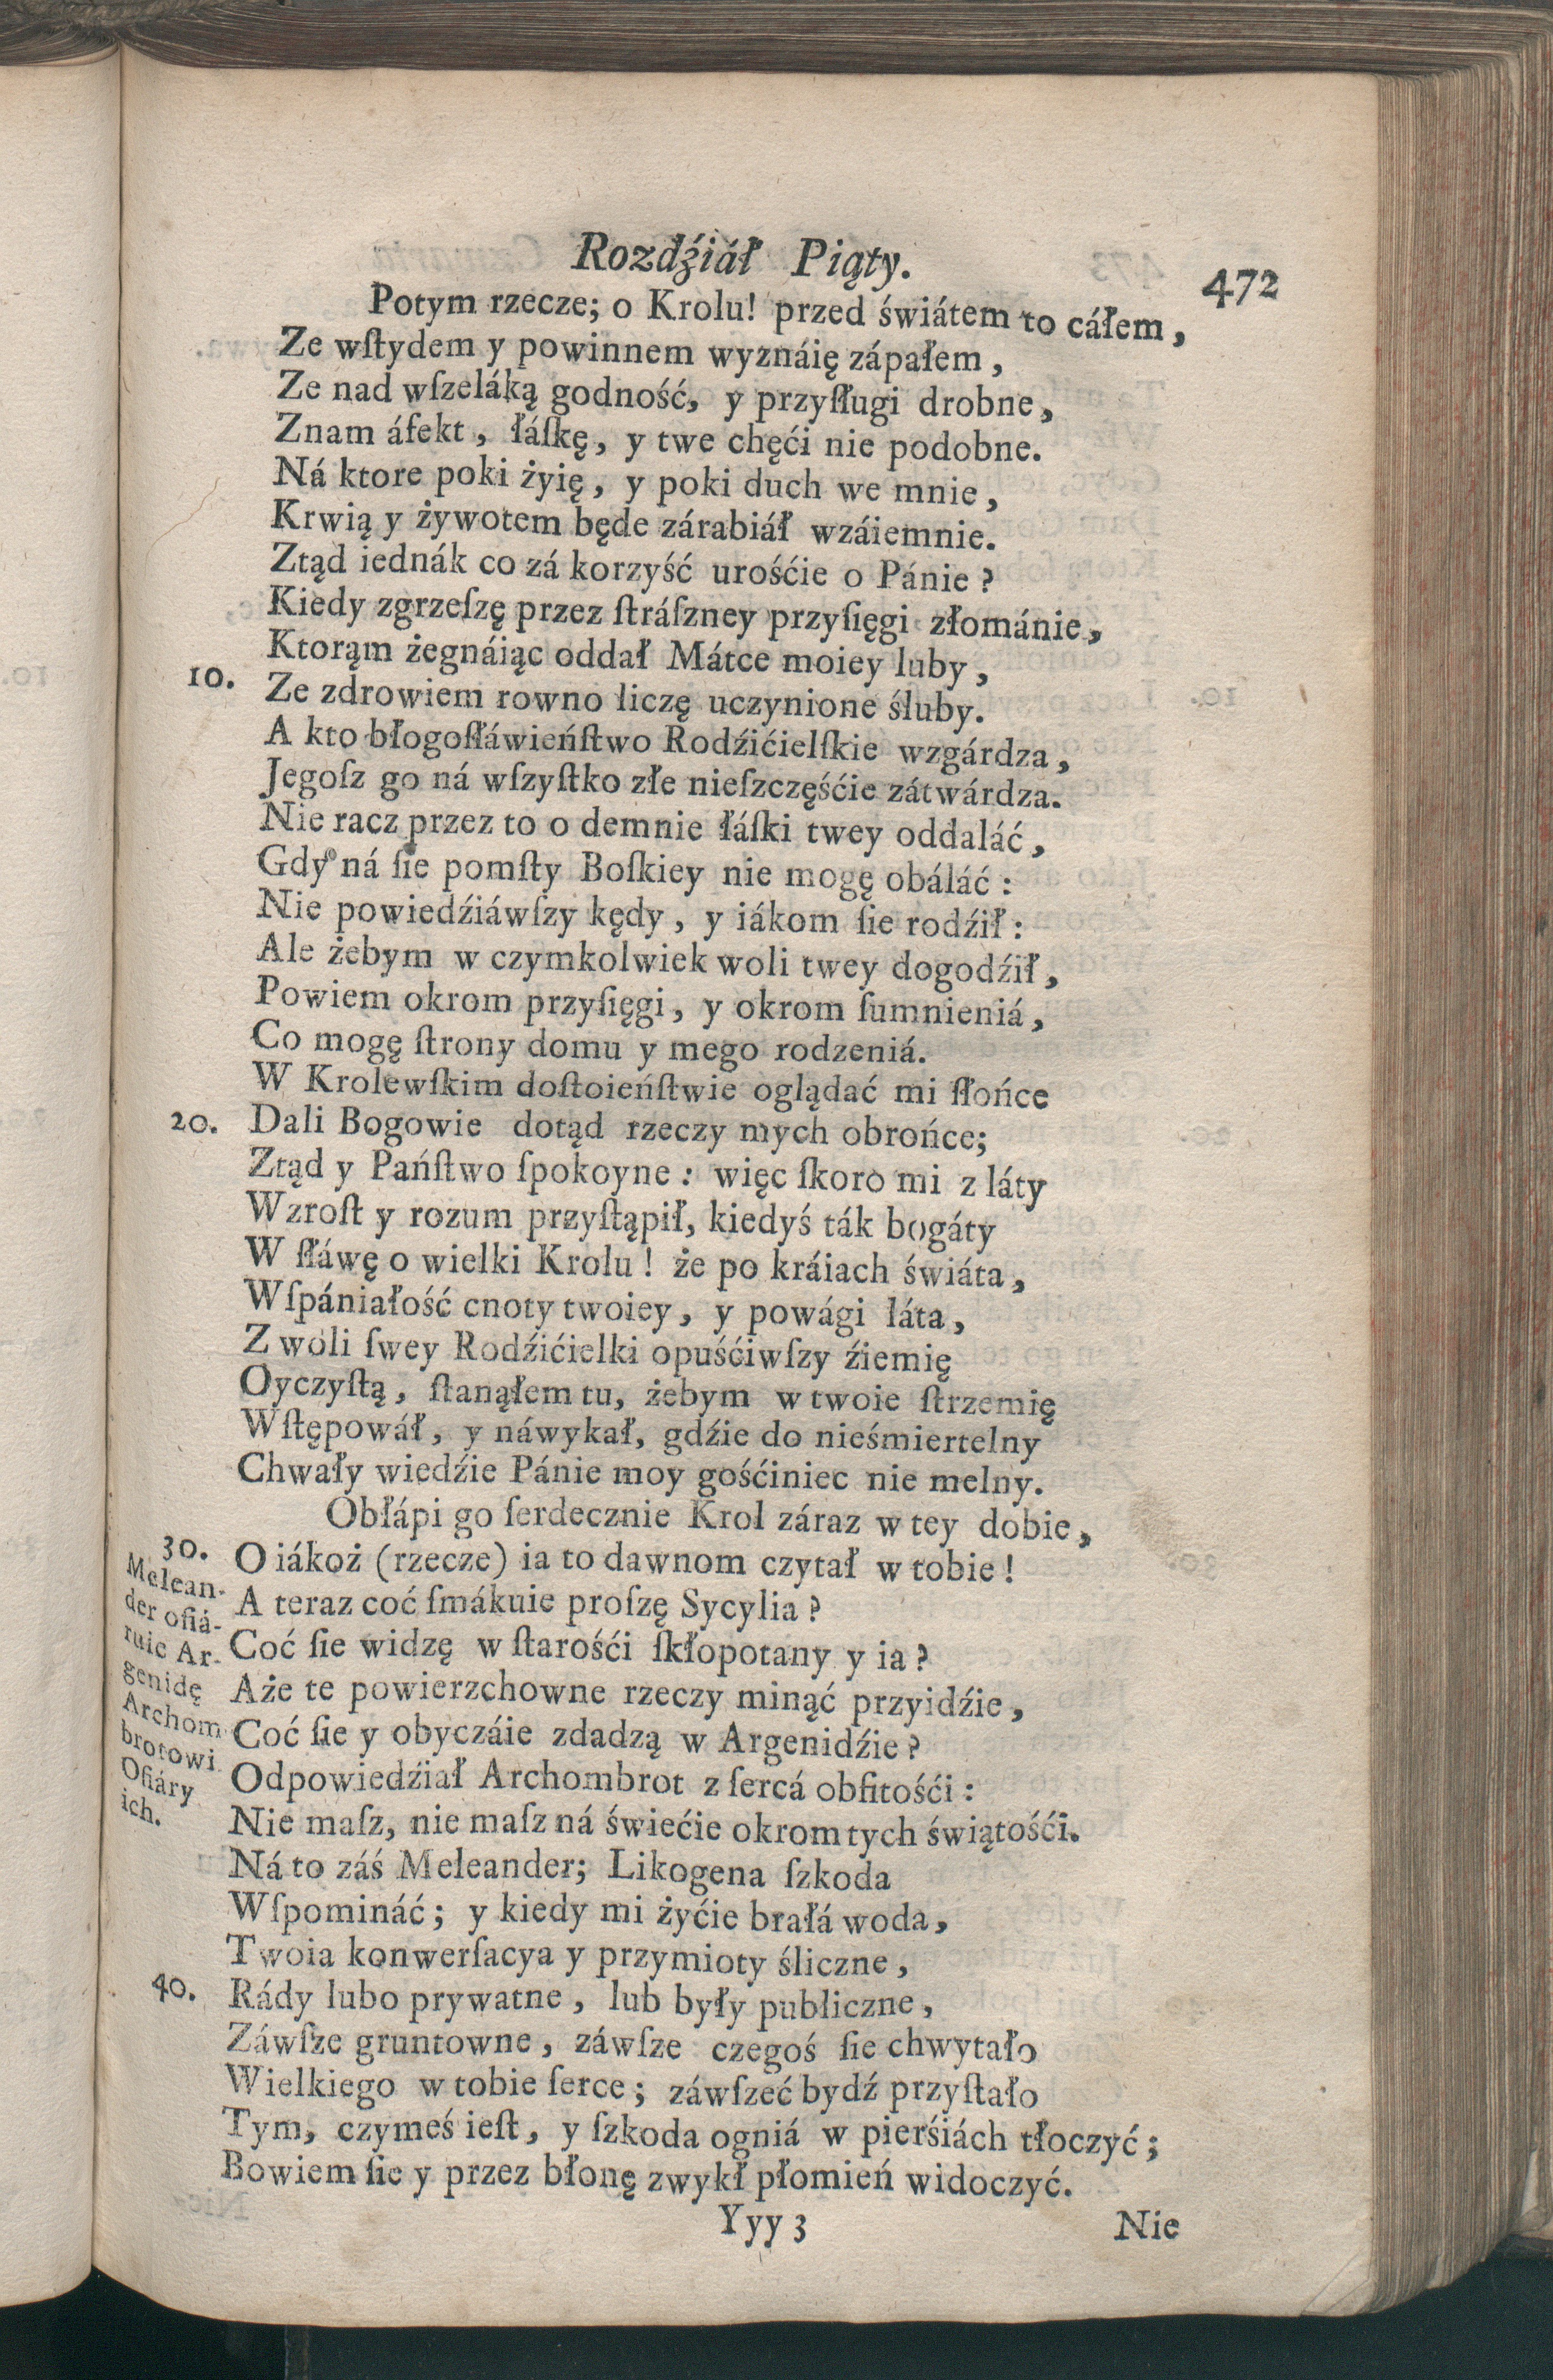 Rozdźiáł Piąty.
472
Potym rzecze; o Krolu! przed świátem to cáłem,
Ze wſtydem y powinnem wyznáię zápałem,
Ze nad wſzeláką godność, y przyſługi drobne,
Znam áfekt, łáſkę, y twe chęći nie podobne.
Ná ktore poki żyię, y poki duch we mnie,
Krwią y żywotem będe zárabiáł wzáiemnie.
Ztąd iednák co zá korzyść urośćie o Pánie?
Kiedy zgrzeſzę przez ſtráſzney przyſięgi złománie,
Ktorąm żegnáiąc oddał Mátce moiey luby,
10. Ze zdrowiem rowno liczę uczynione śluby.
A kto błogoſłáwieńſtwo Rodźićielſkie wzgárdza,
Jegoſz go ná wſzyſtko złe nieſzczęśćie zátwárdza.
Nie racz przez to o demnie łáſki twey oddaláć,
Gdy ná ſie pomſty Boſkiey nie mogę obáláć:
Nie powiedźiáwſzy kędy, y iákom ſie rodźił:
Ale żebym w czymkolwiek woli twey dogodźił,
Powiem okrom przyſięgi, y okrom ſumnieniá,
Co mogę ſtrony domu y mego rodzeniá.
W Krolewſkim doſtoieńſtwie oglądać mi ſłońce
20. Dali Bogowie dotąd rzeczy mych obrońce;
Ztąd y Pańſtwo ſpokoyne: więc ſkoro mi z láty
Wzroſt y rozum przyſtąpił, kiedyś ták bogáty
W ſłáwę o wielki Krolu! że po kráiach świáta,
Wſpániałość cnoty twoiey, y powági láta,
Z woli ſwey Rodźićielki opuśćiwſzy źiemię
Oyczyſtą, ſtanąłem tu, żebym w twoie ſtrzemię
Wſtępowáł, y náwykał, gdźie do nieśmiertelny
Chwały wiedźie Pánie moy gośćiniec nie melny.
Obłápi go ſerdecznie Krol záraz w tey dobie,
30. O iákoż (rzecze) ia to dawnom czytał w tobie!
Melean-
der ofiá-
ruie Ar-
genidę
Archom
brotowi
Ofiáry
ich.
A teraz coć ſmákuie proſzę Sycylia?
Coć ſie widzę w ſtarośći ſkłopotany y ia?
Aże te powierzchowne rzeczy minąć przyidźie,
Coć ſie y obyczáie zdadzą w Argenidźie?
Odpowiedźiał Archombrot z ſercá obfitośći:
Nie maſz, nie maſz ná świećie okrom tych świątośći.
Ná to záś Meleander; Likogena ſzkoda
Wſpomináć; y kiedy mi żyćie brałá woda,
Twoia konwerſacya y przymioty śliczne,
40. Rády lubo prywatne, lub były publiczne,
Záwſze gruntowne, záwſze czegoś ſie chwytało
Wielkiego w tobie ſerce; záwſzeć bydź przyſtało
Tym, czymeś ieſt, y ſzkoda ogniá w pierśiách tłoczyć;
Bowiem ſie y przez błonę zwykł płomień widoczyć.
Yyy 3
Nie